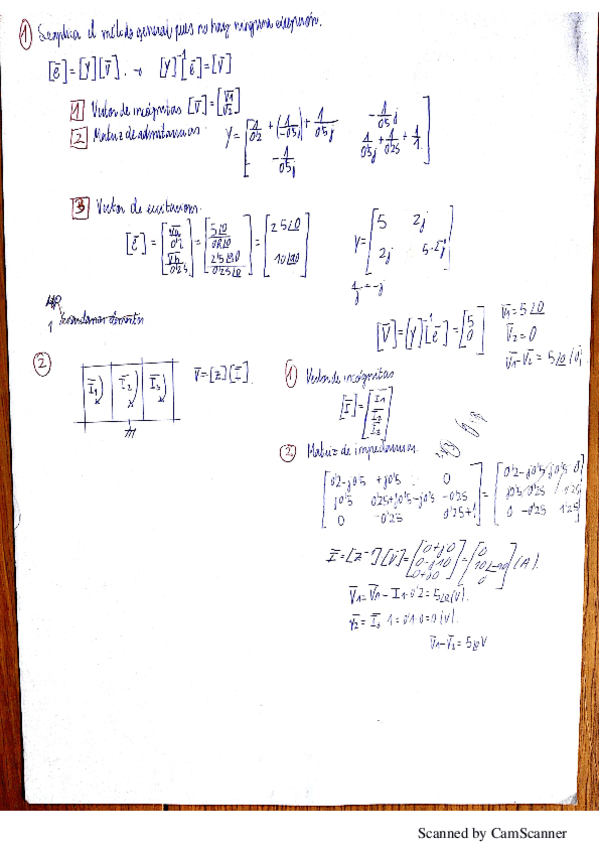 1 Se aplica el método general pues no hay ninguna excepción.
[ē]=[Y][V̄]. → [Y]⁻¹[ē]=[V̄]
1 Vector de incógnitas [V̄]=[V̄1 V̄2]
2 Matriz de admitancias. Y=[1/0'2 + (1/-0'5j) + 1/0'5j  -1/0'5j
-1/0'5j  1/0'5j + 1/0'25 + 1/1]
3 Vector de excitaciones.
[ē]=[V̄a/0'2 V̄b/0'25]=[5∠0/0'2∠0 2'5∠90/0'25∠0]=[25∠0 10∠90]
Y=[5 2j
2j 5-2j]
1/j=-j
[V̄]=[Y]⁻¹[ē]=[5 0]
V̄1=5∠0
V̄2=0
V̄1-V̄2=5∠0 (V)
2 Ī1 Ī2 Ī3 V̄=[Z][Ī].
1 Vector de incógnitas
[Ī]=[Ī1 Ī2 Ī3]
2 Matriz de impedancias.
[0'2-j0'5 +j0'5 0
j0'5 0'25+j0'5-j0'5 -0'25
0 -0'25 0'25+1]
=[0'2-j0'5 j0'5 0
j0'5 0'25
0 -0'25 1'25]
Ī=[Z⁻¹][V̄]=[0+j0 0-j10 0+j0]=[0 10∠-90 0] (A).
V̄1=V̄a-I1·0'2=5∠0 (V).
V̄2=Ī3·1=0 (V).
V̄1-V̄2=5∠0 V
Scanned by CamScanner